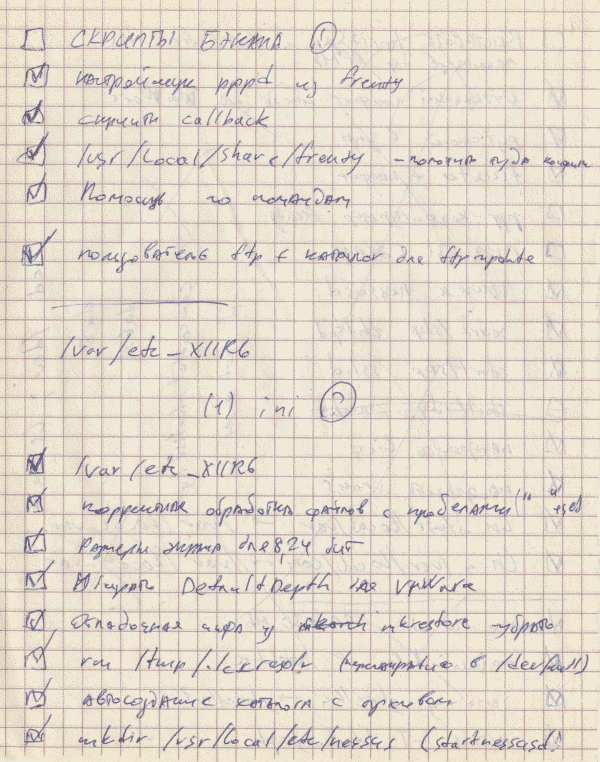 СКРИПТЫ БЭКАПА (!)
настройщик pppd из frenzy
скрипты callback
/usr/local/share/frenzy - положить туда конфиги
Помощь по командам
пользователь ftp + каталог для ftp-update
/var/etc_X11R6
(1) ini (?)
/var/etc_X11R6
корректная обработка файлов с пробелами " "
Размеры экрана для 8, 24 бит
DefaultDepth для VMWare
Отладочная инфа из mkrestore - убрать
rm /tmp/ в /dev/null)
автосоздание каталога с архивом
mkdir /usr/local/etc/nessus (startnessusd!